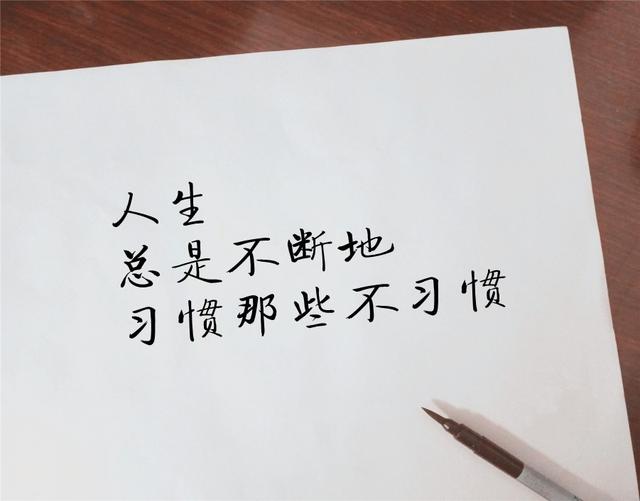 人生
总是不断地
习惯那些不习惯